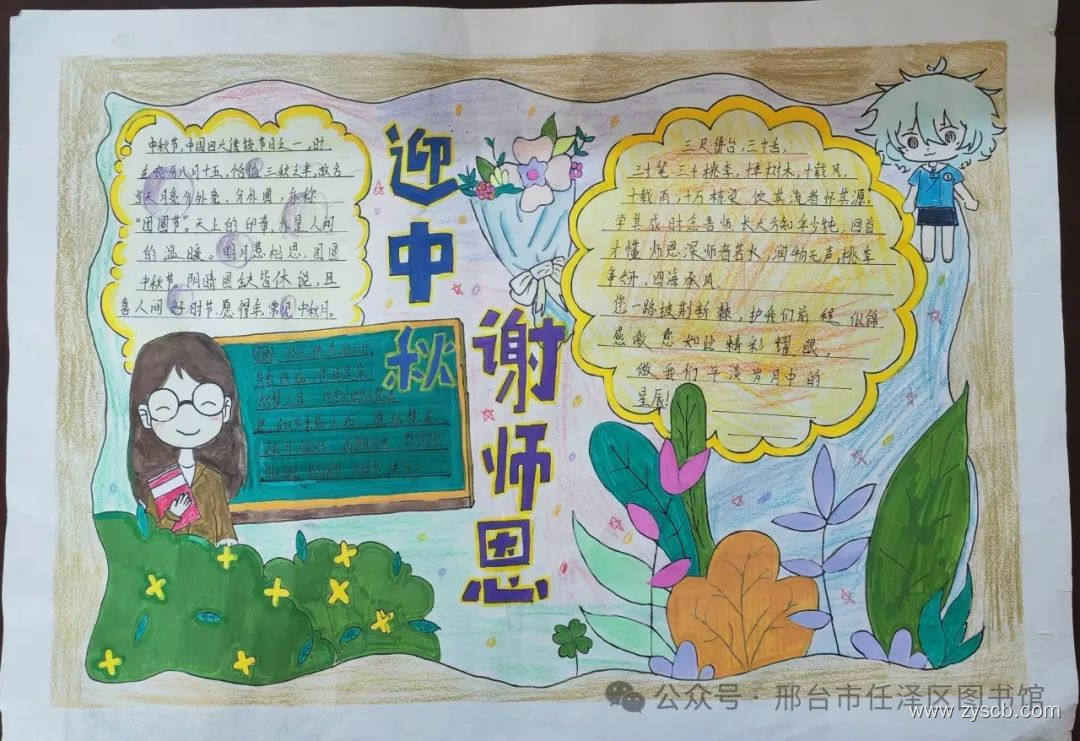 迎中秋
谢师恩
中秋节,中国四大传统节日之一,时
在农历八月十五,恰值三秋之半,故名
当天月亮分外亮、分外圆,亦称
“团圆节”。天上的印章,亦是人间
的温暖。明月惹相思,团圆
中秋节。阴晴圆缺皆休说,且
喜人间好时节,愿得年常见中秋月。
智慧之
三尺讲台,三寸舌,
三寸笔,三千桃李,十载树木,十载风,
十载雨,十万栋梁,饮其流者怀其源,
学其成时念吾师,长大方知年少纯,回首
才懂师恩深,师者若水,润物无声,桃李
争妍,四海承风。
您一路披荆斩棘,护我们前程似锦
感激您如此精彩耀眼,
做我们平淡岁月中的
星辰!
公众号 · 邢台市任泽区图书馆
www.zyscb.com